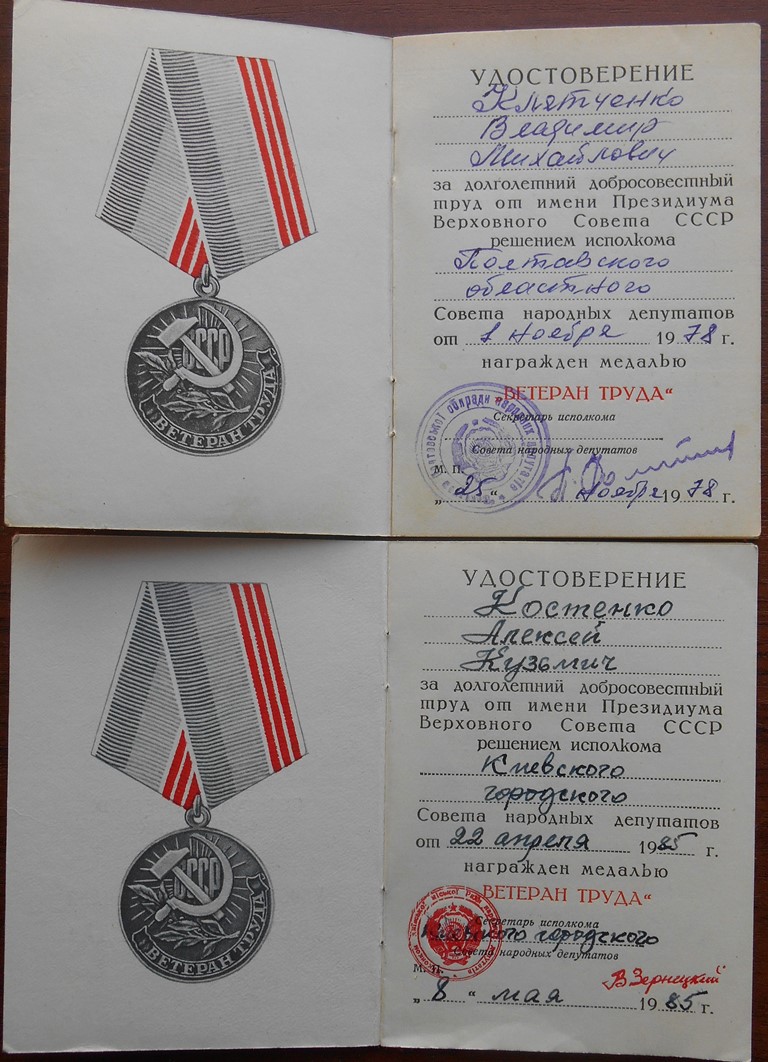 СССР
ВЕТЕРАН ТРУДА
УДОСТОВЕРЕНИЕ
Клятченко
Владимир
Михайлович
за долголетний добросовестный
труд от имени Президиума
Верховного Совета СССР
решением исполкома
Полтавского
областного
Совета народных депутатов
от 1 ноября 1978 г.
награжден медалью
„ВЕТЕРАН ТРУДА“
Секретарь исполкома
Совета народных депутатов
М. П.
„25“ ноября 1978 г.
СССР
ВЕТЕРАН ТРУДА
УДОСТОВЕРЕНИЕ
Костенко
Алексей
Кузьмич
за долголетний добросовестный
труд от имени Президиума
Верховного Совета СССР
решением исполкома
Киевского
городского
Совета народных депутатов
от 22 апреля 1985 г.
награжден медалью
„ВЕТЕРАН ТРУДА“
Секретарь исполкома
Киевского городского
Совета народных депутатов
М. П.
В Зерницкий
„8“ мая 1985 г.